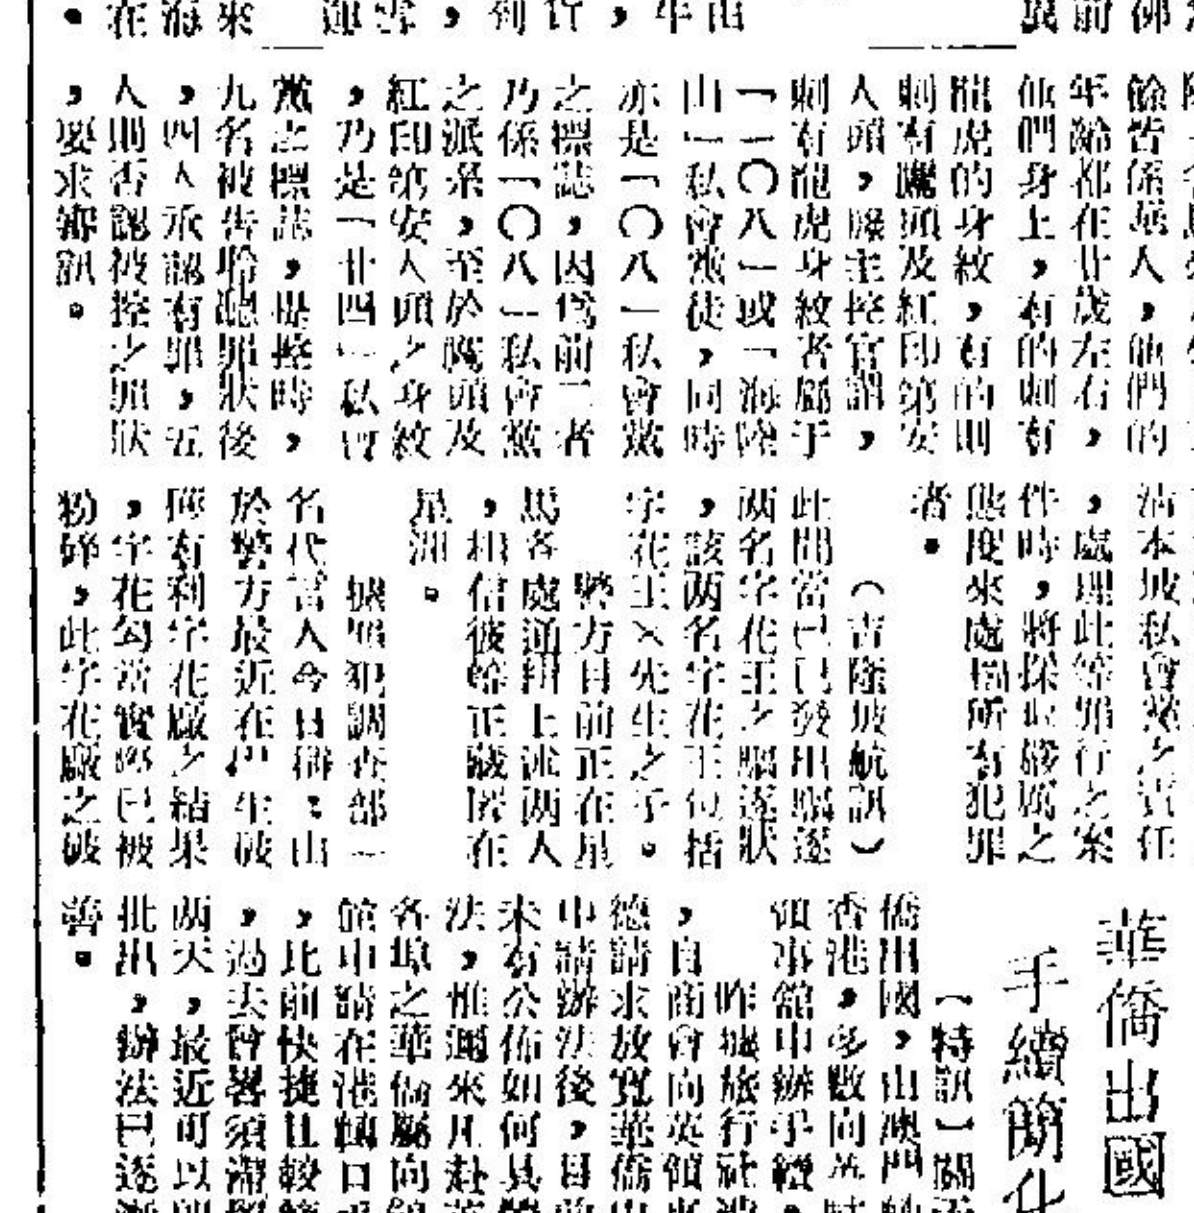 餘皆係華人，他們的
年齡都在廿歲左右，
他們身上，有的刺有
龍虎的身紋，有的則
刺有鷹頭及紅印第安
人頭，據主控官謂，
刺有龍虎身紋者屬于
「一〇八」或「海陸
山」私會黨徒，同時
亦是「〇八」私會黨
之標誌，因爲前二者
乃係「〇八」私會黨
之派系，至於鷹頭及
紅印第安人頭之身紋
，乃是「廿四」私會
黨之標誌，控時，
九名被告聆聽罪狀後
，四人承認有罪，五
人則否認被控之罪狀
，要求審訊。
本坡私會黨之責任
，處理此等罪行之案
件時，將採取嚴厲之
態度來處置所有犯罪
者。
（吉隆坡航訊）
此間當已發出驅逐
兩名字花王之驅逐狀
，該两名字花王包括
字花王×先生之子。
警方目前正在星
馬各處通緝上述两人
，相信彼等正藏匿在
星洲。
據犯調查部一
名代言人今日稱：由
於警方最近在生破
有利字花廠之結果
，字花勾當實際已被
粉碎，此字花廠之破
華僑出國
手續簡化
（特訊）關
僑出國，由澳門
香港，多數向英
領事舘申辦手續，
昨據旅行社
，自商會向英領事
德請求放寬華僑出
申請辦法後，目前
未有公佈如何具體
法，惟邇來凡赴英
各埠之華僑屬向領
館申請在港轉口
，比前快捷且較
，過去曾畧須滯留
兩天，最近可以即
批出，辦法已逐漸
善。